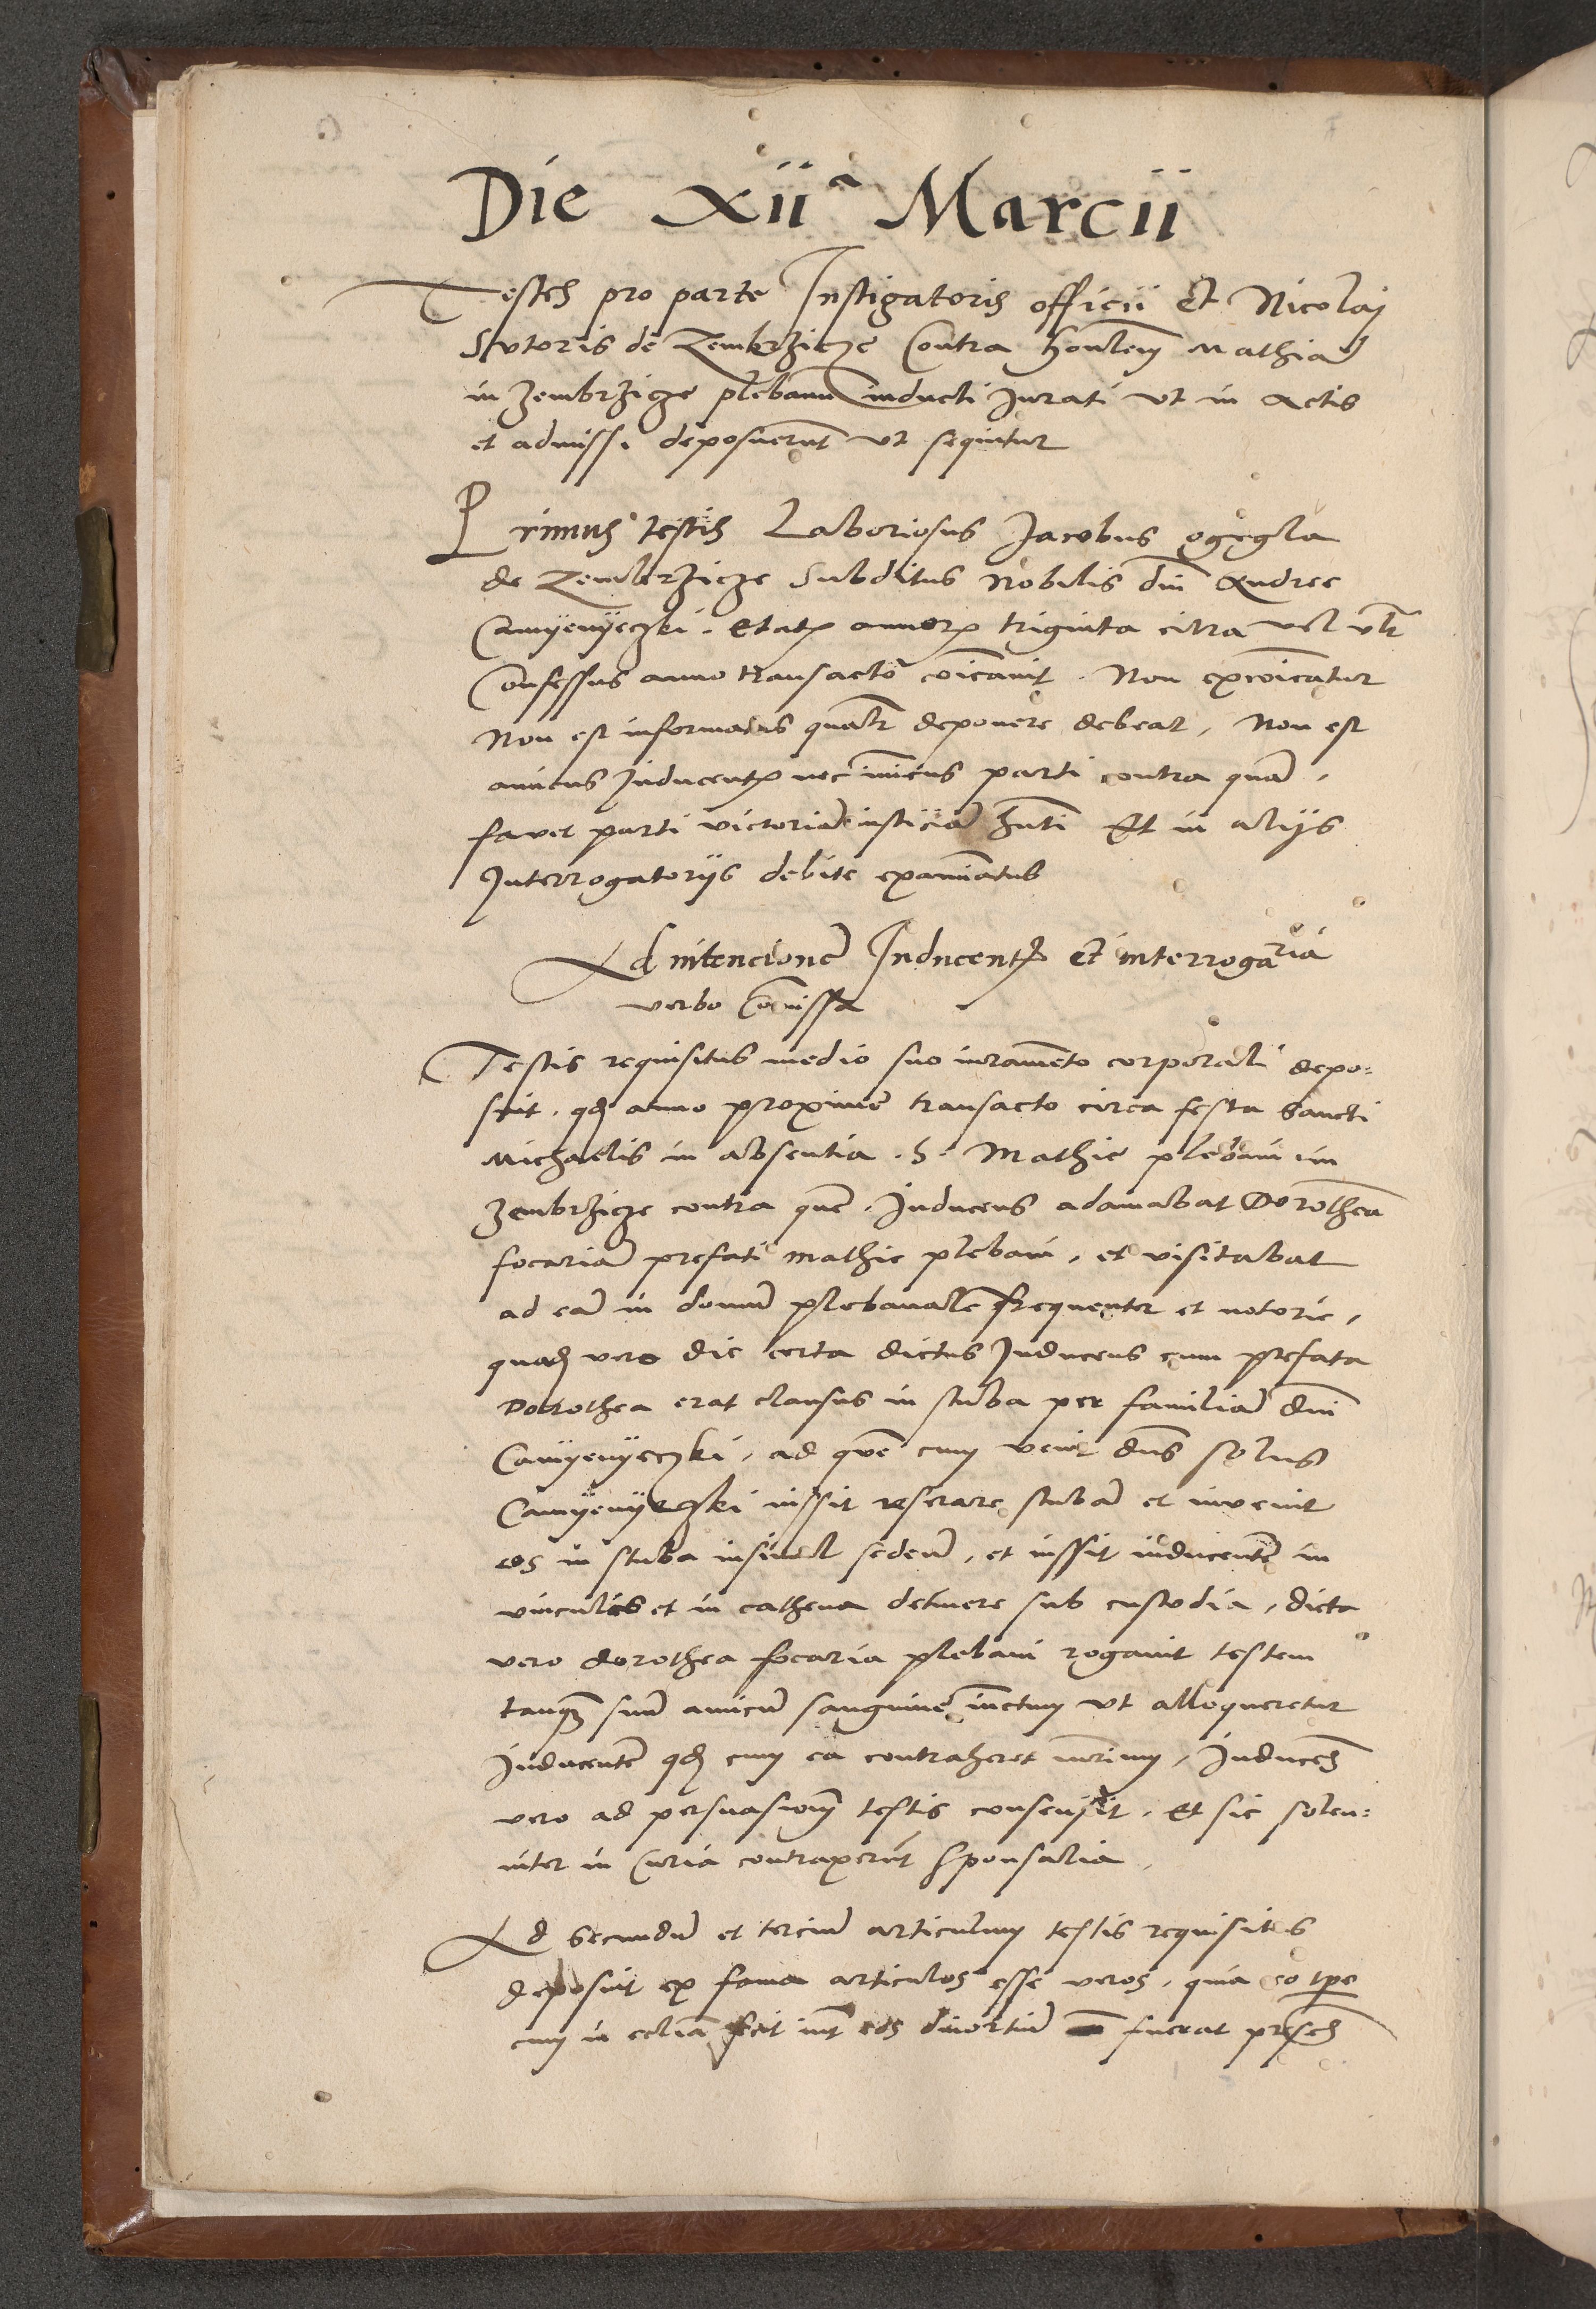 Die xii a Marcii
Testes pro parte Instigatoris officii Et Nicolaj
Sutoris de Zembrzicze Contra honlem Mathiā
in Zembrzicze plebanū inducti Jurati ut in Actis
et admissi deposuerūt ut sequitur
Primus testis Laboriosus Jacobus
de Zembrzicze Subditus Nobilis dni Andree
Camyenyeczki . Etatis annorum triginta citra vel ultr
Confessus anno transacto coicauit . Non excoicatur
Non est informatus qualr deponere debeat , Non est
amicus Inducentis nec inimicus parti contra quā ,
favet parti victoriā iusticiā hnti Et in aliis
Interrogatoriis debite examinatus
Ad intencionē Inducentis et interrogaria
verbo Comissa
Testis requisitus medio suo iuramēto corporali depo=
suit . qd anno proxime transacto circa festa Sancti
Michaelis in absentia . h . Mathie plebani in
Zembrzicze contra quē . Inducens adamabat Dorotheā
focariā prefati Mathie plebani , et visitabat
ad eā in domū plebanalē frequenter et notorie ,
quad vero die certa dictus Inducens cum prefata
Dorothea erat clausus in stuba per familiā dni
Camyenyeczki , ad quē cum venit dns solus
Camyenyeczki iussit reserare stubā et invenit
eos in stuba insimul sedēn , et iussit inducentē in
vinculis et in cathena detinere sub custodia , dicta
vero dorothea focaria plebani rogavit testem
tanq suū amicū sanguine iunctum ut alloqueretur
Inducentē qd cum ea contraheret mrimon , Inducens
vero ad persuasionem testis consensit . Et sic solen=
niter in Curia contraxerūt Sponsalia .
Ad Secundū et terciū articulum testis requisitus
deposuit ex fama articulos esse veros , quia eo tpe
cum in eclia int eos divortiū fuerat presens